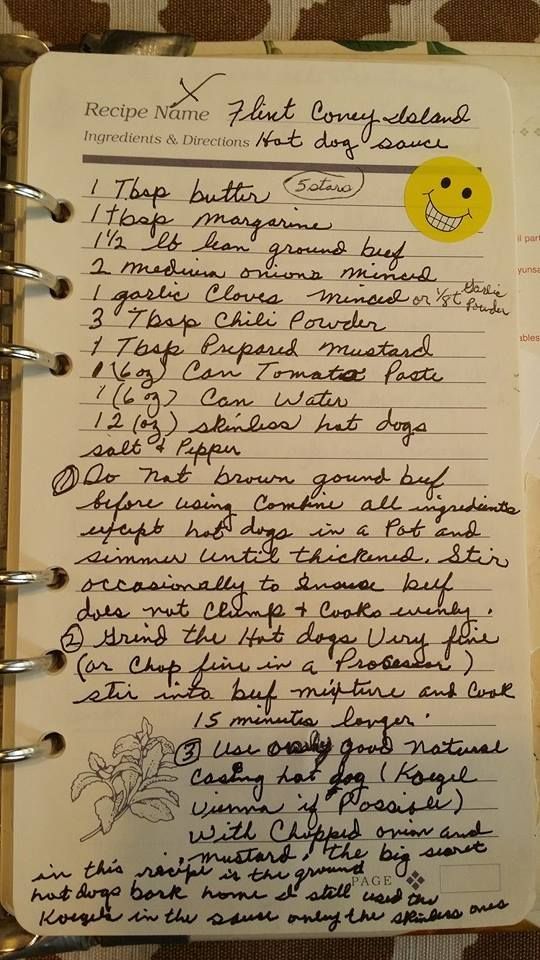 X
Recipe Name Flint Coney Island
Ingredients & Directions Hot dog sauce
1 Tbsp butter (5 stars)
1 tbsp margarine
1 1/2 lb lean ground beef
2 medium onions minced
1 garlic Cloves minced or 1/8 t Garlic Powder
3 Tbsp Chili Powder
1 Tbsp Prepared mustard
1 (6 oz) Can Tomato Paste
1 (6 oz) Can Water
12 (oz) skinless hot dogs
salt & Pepper
① Do not brown gound beef
before using Combine all ingredients
except hot dogs in a Pot and
simmer until thickened. Stir
occasionally to Insuse beef
does not Clump & Cooks evenly.
② Grind the Hot dogs Very fine
(or Chop fine in a Processor)
stir into beef mixture and Cook
15 minutes longer.
③ Use only good natural
Casing hot dog (Koegel
Vienna if Possible)
With Chopped onion and
mustard, the big secret
in this recipe is the ground
hot dogs back home I still used the
Koegels in the sauce only the skinless ones
PAGE
l part
yunsa
ables